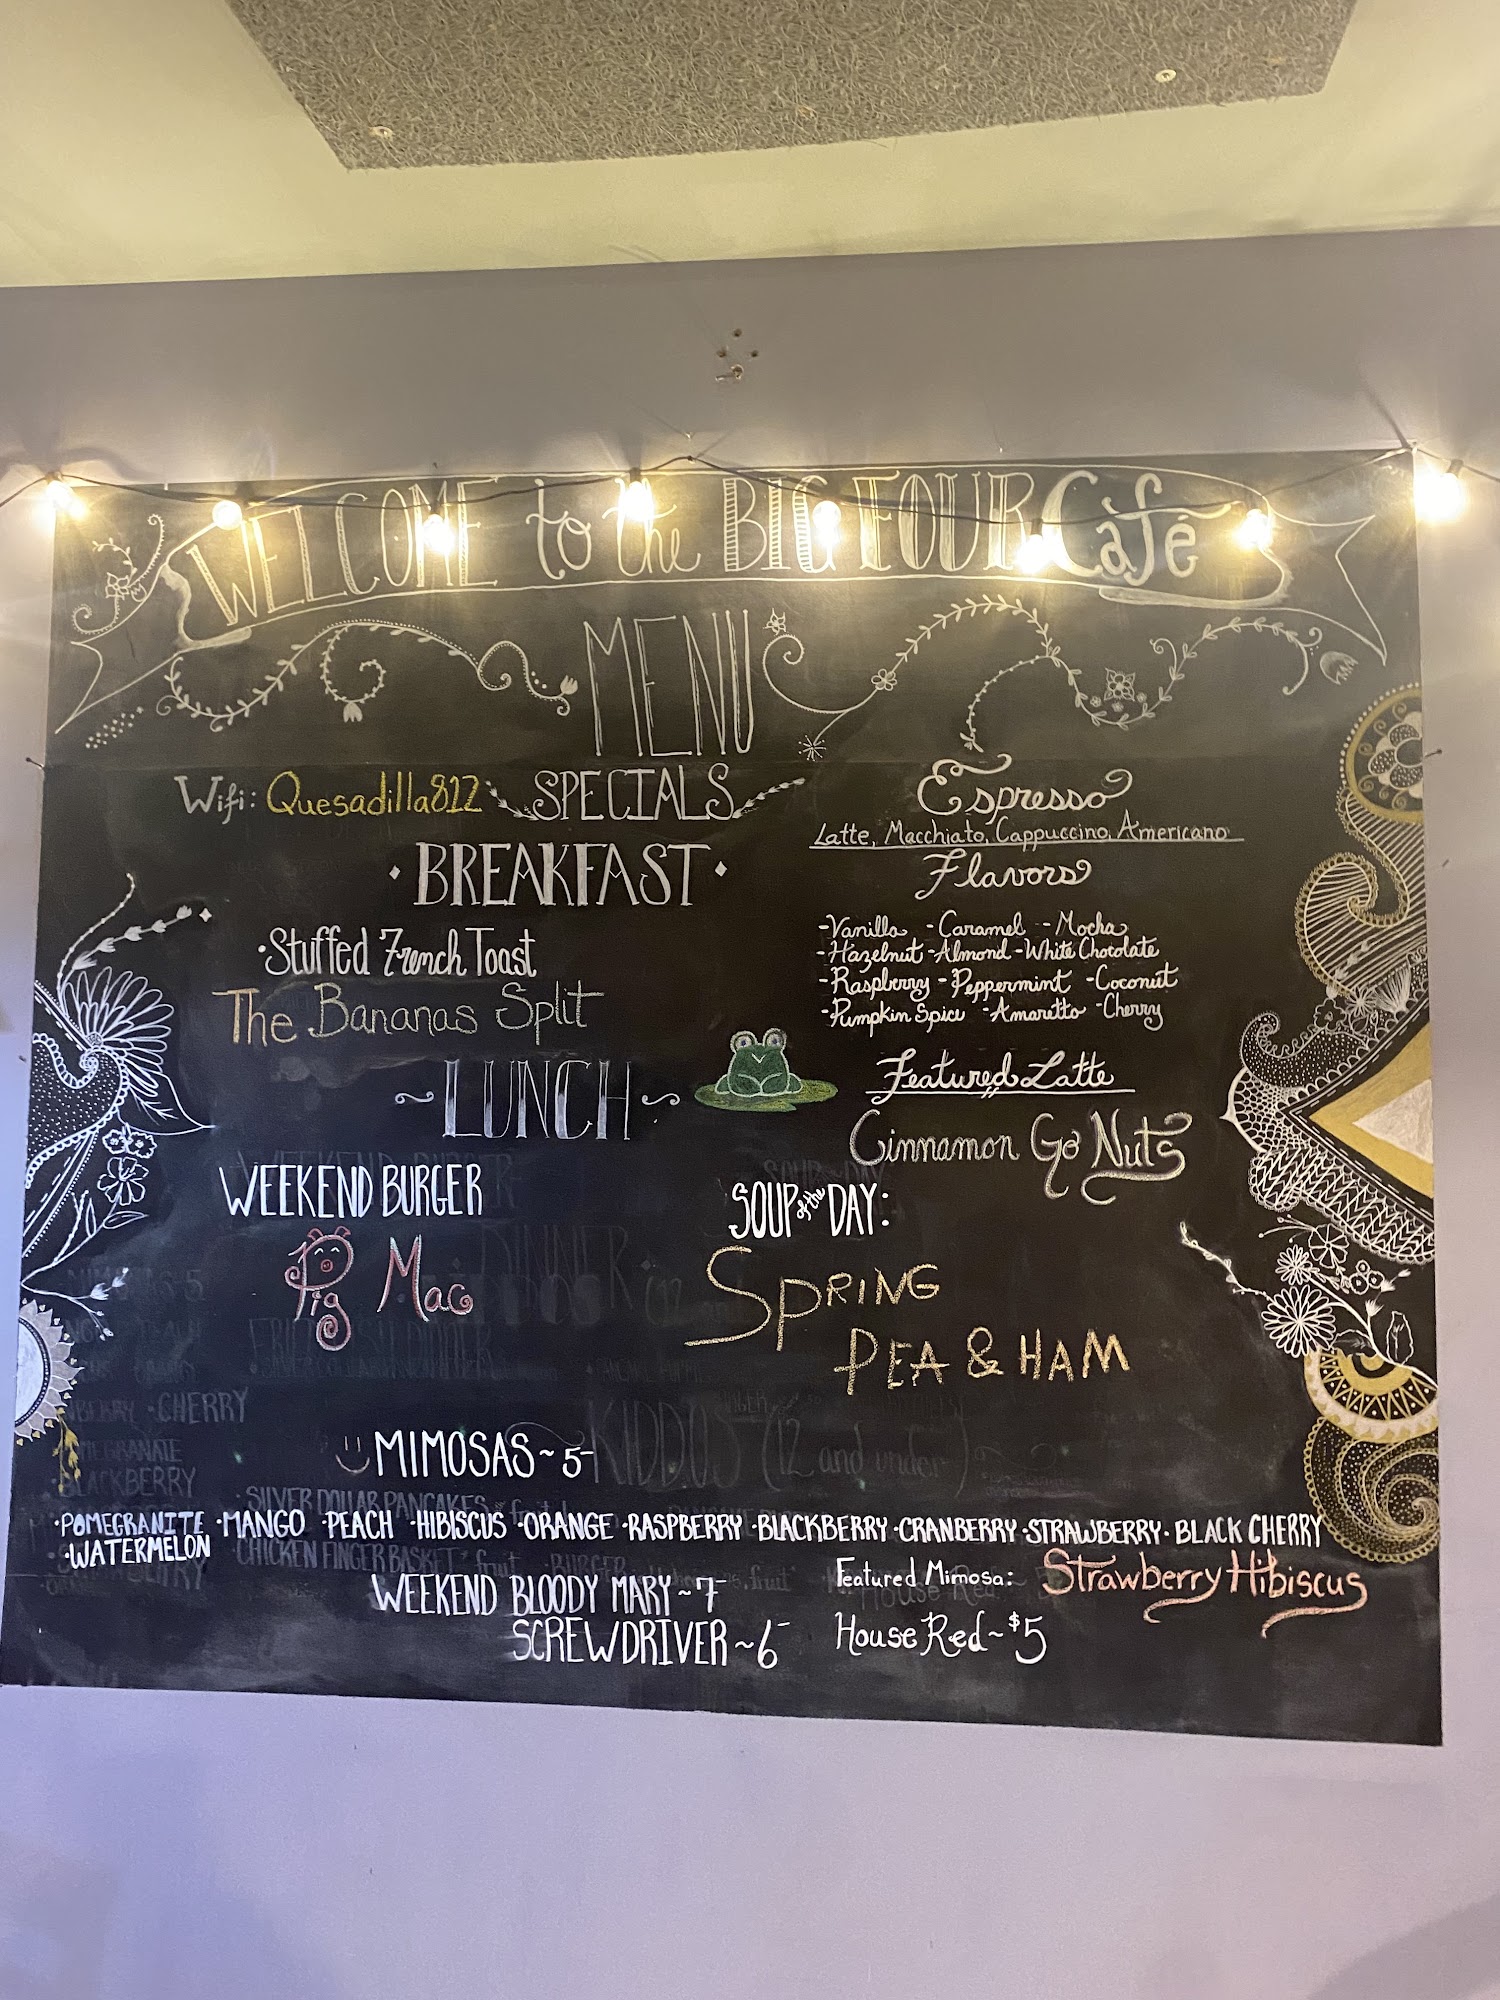 WELCOME to the BIG FOUR Café
MENU
Wifi: Quesadilla812
SPECIALS
• BREAKFAST •
•Stuffed French Toast
The Bananas Split
~LUNCH~
WEEKEND BURGER
Pig Mac
Espresso
Latte, Macchiato, Cappuccino, Americano
Flavors
-Vanilla -Caramel -Mocha
-Hazelnut -Almond -White Chocolate
-Raspberry -Peppermint -Coconut
-Pumpkin Spice -Amaretto -Cherry
Featured Latte
Cinnamon Go Nuts
SOUP of the DAY:
SPRING
PEA & HAM
•CHERRY
BLACKBERRY
KIDDOS (12 and under)
SILVER DOLLAR PANCAKES
CHICKEN FINGER BASKET
MIMOSAS ~ 5-
•POMEGRANITE •MANGO •PEACH •HIBISCUS •ORANGE •RASPBERRY •BLACKBERRY •CRANBERRY •STRAWBERRY • BLACK CHERRY
•WATERMELON
WEEKEND BLOODY MARY ~ 7-
SCREWDRIVER ~ 6-
Featured Mimosa: Strawberry Hibiscus
House Red ~ $5